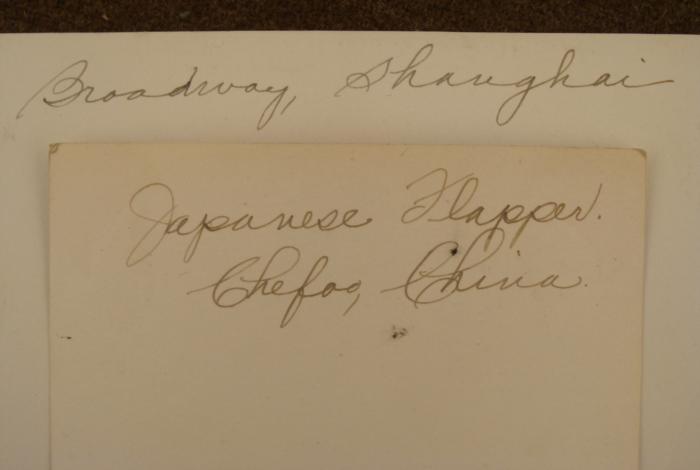 Broadway, Shanghai
Japanese Flapper.
Chefoo, China.